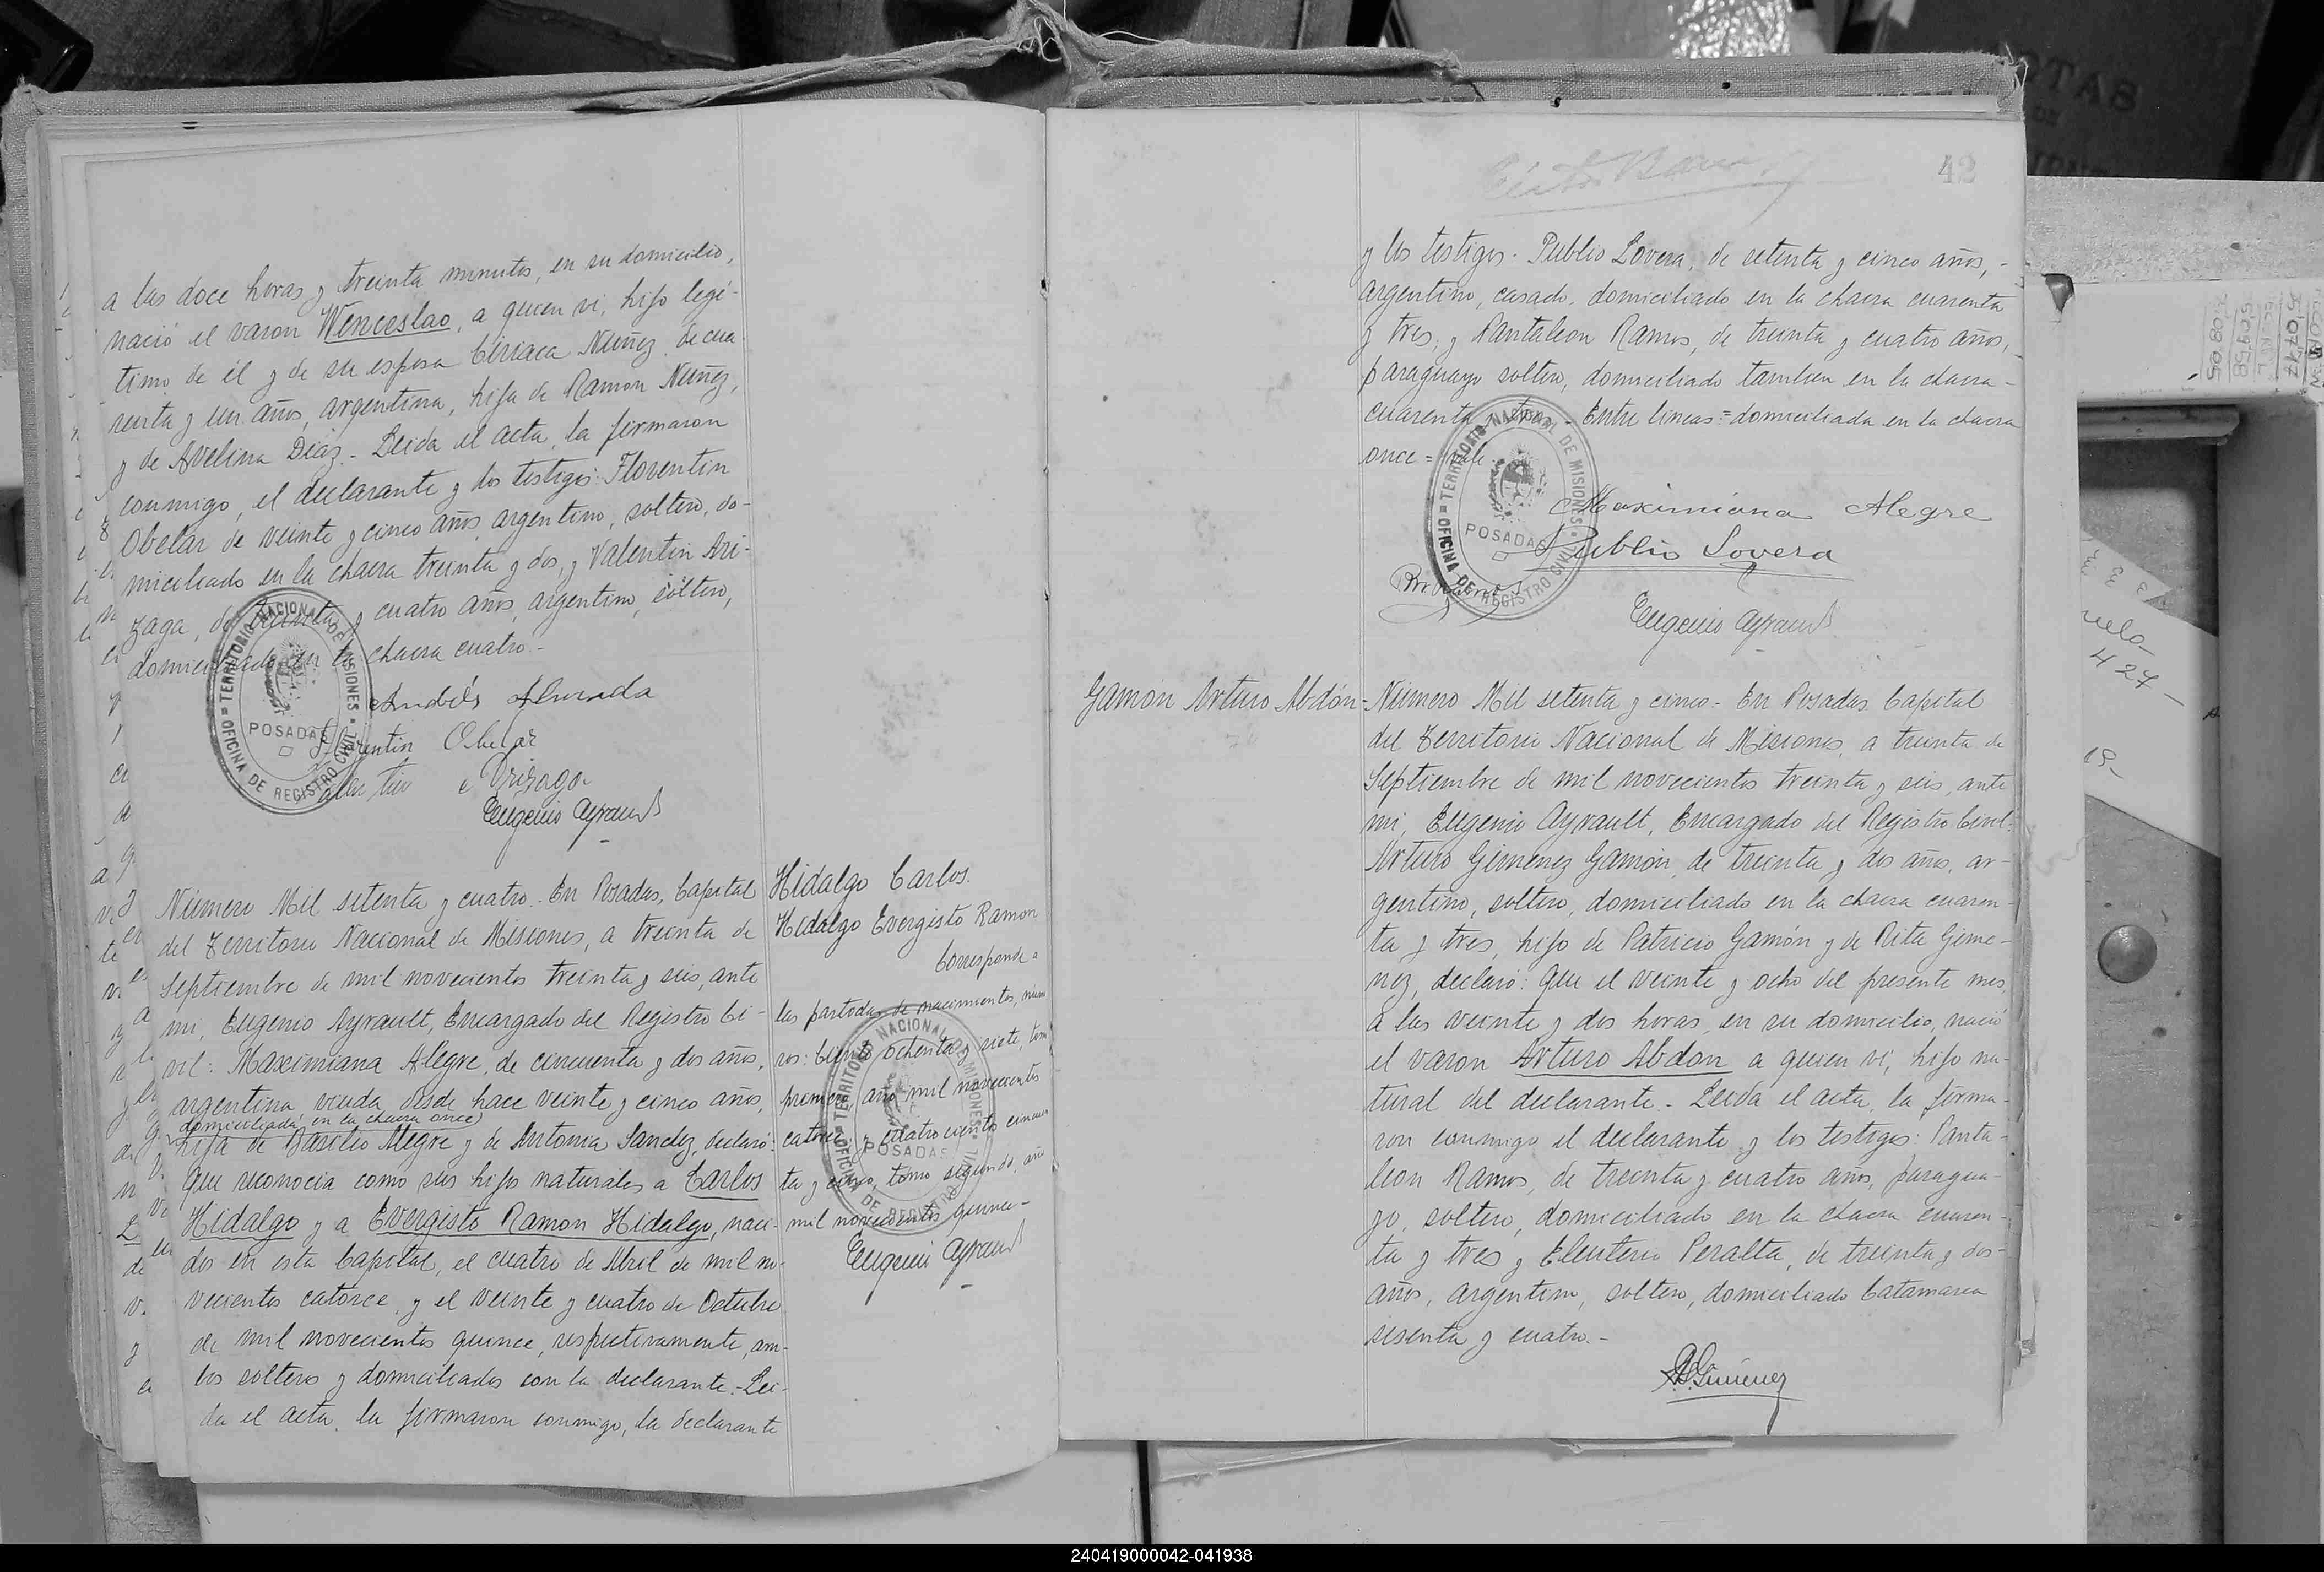 a las doce horas y treinta minutos, en su domicilio,
nació el varon Wenceslao, a quien vi, hijo legí-
timo de él y de su esposa Ciriaca Nuñez, de cua-
renta y un años, argentina, hija de Ramon Nuñez,
y de Avelina Diaz.- Leida el acta, la firmaron
conmigo, el declarante y dos testigos: Florentin
Obelar de veinte y cinco años, argentino, soltero, do-
miciliado en la chacra treinta y dos, y Valentin Ari-
zaga, de treinta y cuatro años, argentino, soltero,
domiciliado en la chacra cuatro.-
Andrés Almada
Florentin Obelar
Valentin Arizaga
Eugenio Ayrault
TERRITORIO NACIONAL DE MISIONES
POSADAS
OFICINA DE REGISTRO CIVIL
Número Mil setenta y cuatro. En Posadas, Capital
del Territorio Nacional de Misiones, a treinta de
Septiembre de mil novecientos treinta y seis, ante
mi, Eugenio Ayrault, Encargado del Registro Ci-
vil: Maximiana Alegre, de cincuenta y dos años,
argentina, viuda desde hace veinte y cinco años,
domiciliada en la chacra once)
hija de Basilio Alegre y de Antonia Sanchez, declaró:
que reconocia como sus hijo naturales a Carlos
Hidalgo y a Evergisto Ramon Hidalgo, naci-
dos en esta Capital, el cuatro de Abril de mil no-
vecientos catorce, y el veinte y cuatro de Octubre
de mil novecientos quince, respectivamente, am-
bos solteros y domiciliados con la declarante.-Lei-
da el acta, la firmaron conmigo, la declarante
Hidalgo Carlos.
Hidalgo Evergisto Ramon
Corresponde a
las partidas de nacimientos, núme
ros: Ciento ochenta y siete, tomo
primero, año mil novecientos
catorce y cuatrocientos cincuen
ta y cinco, tomo segundo, año
mil novecientos quince-
Eugenio Ayrault
TERRITORIO NACIONAL DE MISIONES
POSADAS
OFICINA DE REGISTRO CIVIL
42
y los testigos: Publio Lovera, de setenta y cinco años,-
argentino, casado, domiciliado en la chacra cuarenta
y tres, y Pantaleon Ramos, de treinta y cuatro años,
paraguayo soltero, domiciliado tambien en la chacra-
cuarenta y tres.- Entre lineas=domiciliada en la chacra
once=vale
Maximiana Alegre
Publio Lovera
Eugenio Ayrault
TERRITORIO NACIONAL DE MISIONES
POSADAS
OFICINA DE REGISTRO CIVIL
Gamón Arturo Abdón-
Número Mil setenta y cinco- En Posadas Capital
del Territorio Nacional de Misiones, a treinta de
Septiembre de mil novecientos treinta y seis, ante
mi, Eugenio Ayrault, Encargado del Registro Civil:
Arturo Gimenez Gamón, de treinta y dos años, ar-
gentino, soltero, domiciliado en la chacra cuaren-
ta y tres, hijo de Patricio Gamón y de Rita Gime-
nez, declaró: Que el veinte y ocho del presente mes,
a las veinte y dos horas, en su domicilio, nació
el varon Arturo Abdon a quien vi, hijo na-
tural del declarante- Leida el acta, la firma-
ron conmigo el declarante y los testigos: Panta-
leon Ramos, de treinta y cuatro años, paragua-
yo, soltero, domiciliado en la chacra cuaren-
ta y tres y Eleuterio Peralta, de treinta y dos-
años, argentino, soltero, domiciliado Catamarca
sesenta y cuatro.-
A. Gimenez
427
19-
240419000042-041938